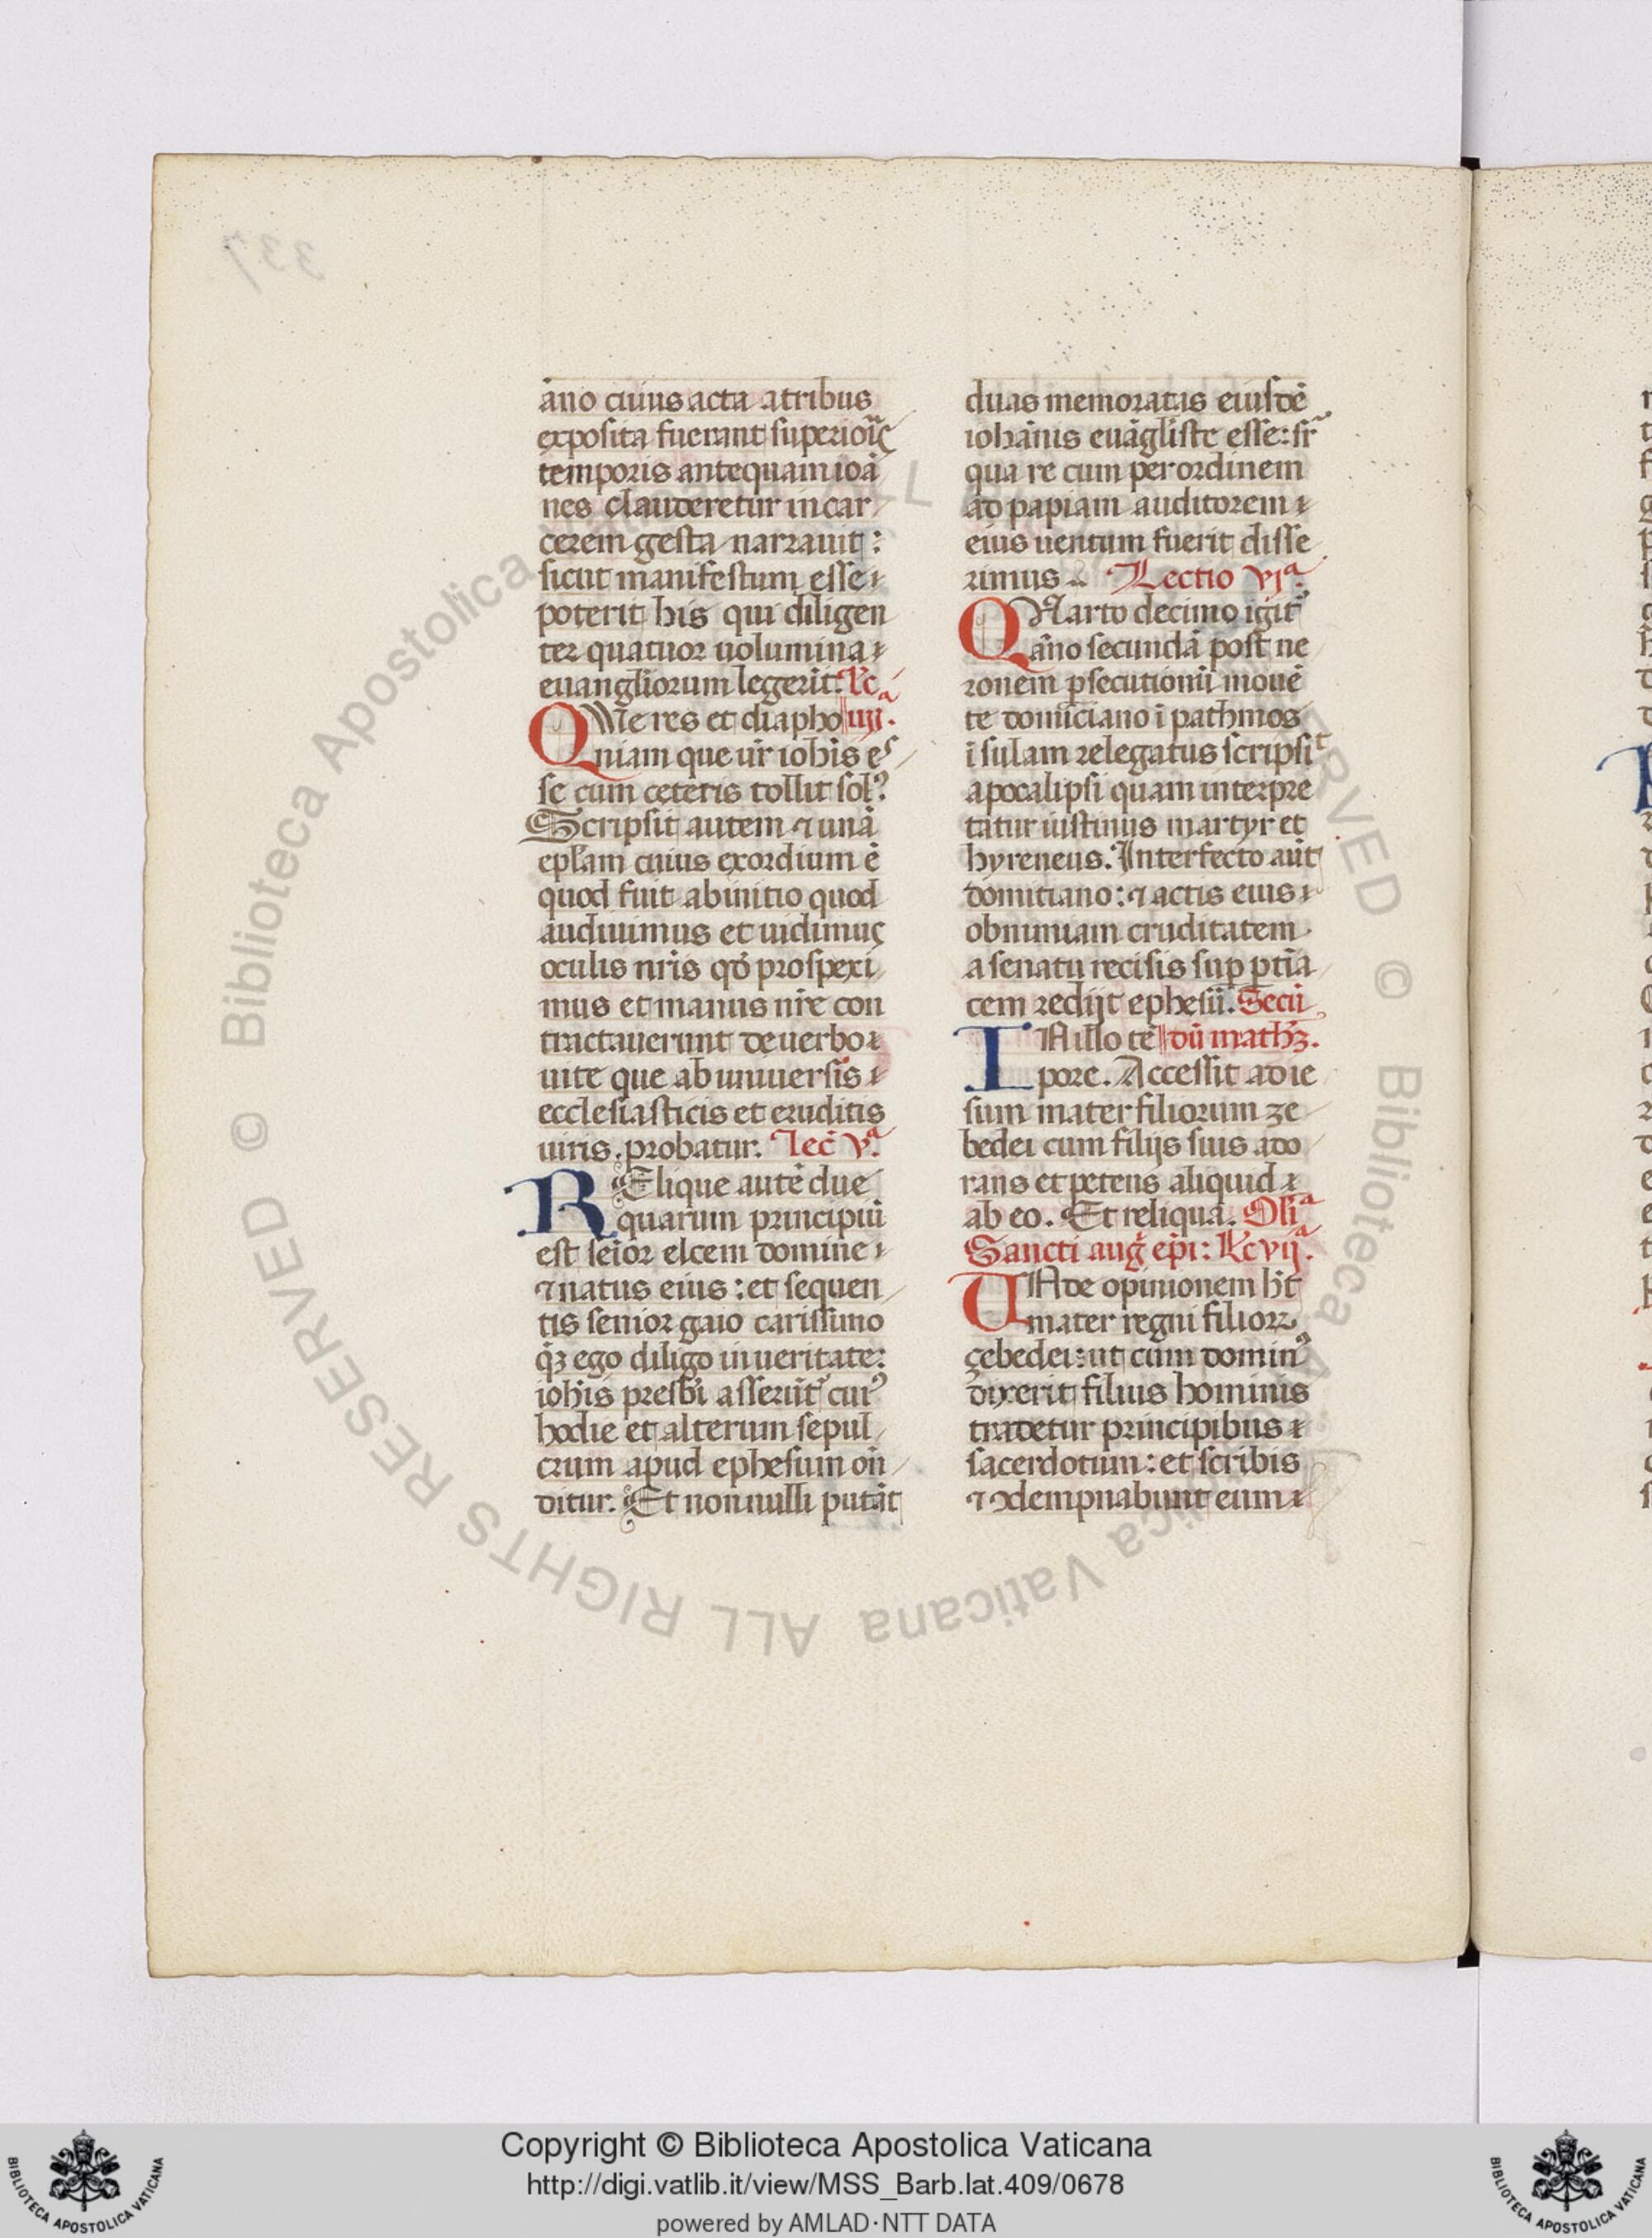 337
āno cuius acta a tribus
exposita fuerant superioꝝ̃
temporis antequam ioā
nes clauderetur in car
cerem gesta narrauit:
sicut manifestum esse
poterit his qui diligen
ter quatuor uolumina
euangliorum legerīt. Lc̄
QUe res et diapho iiijᵃ.
niam que ur̄ ioħis es
se cum ceteris tollit sol⁹
Scripsit autem ⁊ unā
epl̄am cuius exordium ē
quod fuit ab initio quod
audiuimus et uidimus
oculis nr̄is qd̄ prospexi
mus et manus nr̄e con
tractauerunt de uerbo
uite que ab uniuersis
ecclesiasticis et eruditis
uiris probatur. Lec̄ vᵃ.
RElique autē due
quarum principiū
est senīor elcem domine
⁊ natus eius: et sequen
tis senior gaio carissimo
qꝫ ego diligo in ueritate:
ioħis presb̄i asserūt᷑ cui⁹
hodie et alterum sepul
crum apud ephesum on̄
ditur. Et nonnulli putāt
duas memoratas eiusdē
ioħānis euāgliste esse: sr̄
qua re cum per ordinem
ad papiam auditorem
eius uentum fuerit disse
rimus. Lectio vjᵃ.
QUarto decimo igit᷑
āno secundā post ne
ronem ꝑsecutionū mouē
te domiciano ī pathmos
īsulam relegatus scripsit
apocalipsi quam interpre
tatur iustinus martyr et
hyreneus. Interfecto aūt
domitiano: ⁊ actis eius
ob nimiam cruditatem
a senatu recisis sup ꝑtīa
cem redijt ephesū. Secū
IN illo tē dū mathꝫ.
pore. Accessit ad ie
sum mater filiorum ze
bedei cum filijs suis ado
rans et petens aliquid
ab eo. Et reliqua. Olīᵃ
Sancti aug̃ ep̄i: Lc̄ vijᵃ.
UNde opinionem ħt
mater regni filioꝝ
çebedei: ut cum domin⁹
dixerit filius hominis
tradetur principibus
sacerdotum: et scribis
⁊ ↄdempnabunt eum
© Biblioteca Apostolica Vaticana ALL RIGHTS RESERVED © Biblioteca Apostolica Vaticana ALL RIGHTS RESERVED
Copyright © Biblioteca Apostolica Vaticana
http://digi.vatlib.it/view/MSS_Barb.lat.409/0678
powered by AMLAD·NTT DATA
BIBLIOTECA APOSTOLICA VATICANA
BIBLIOTECA APOSTOLICA VATICANA